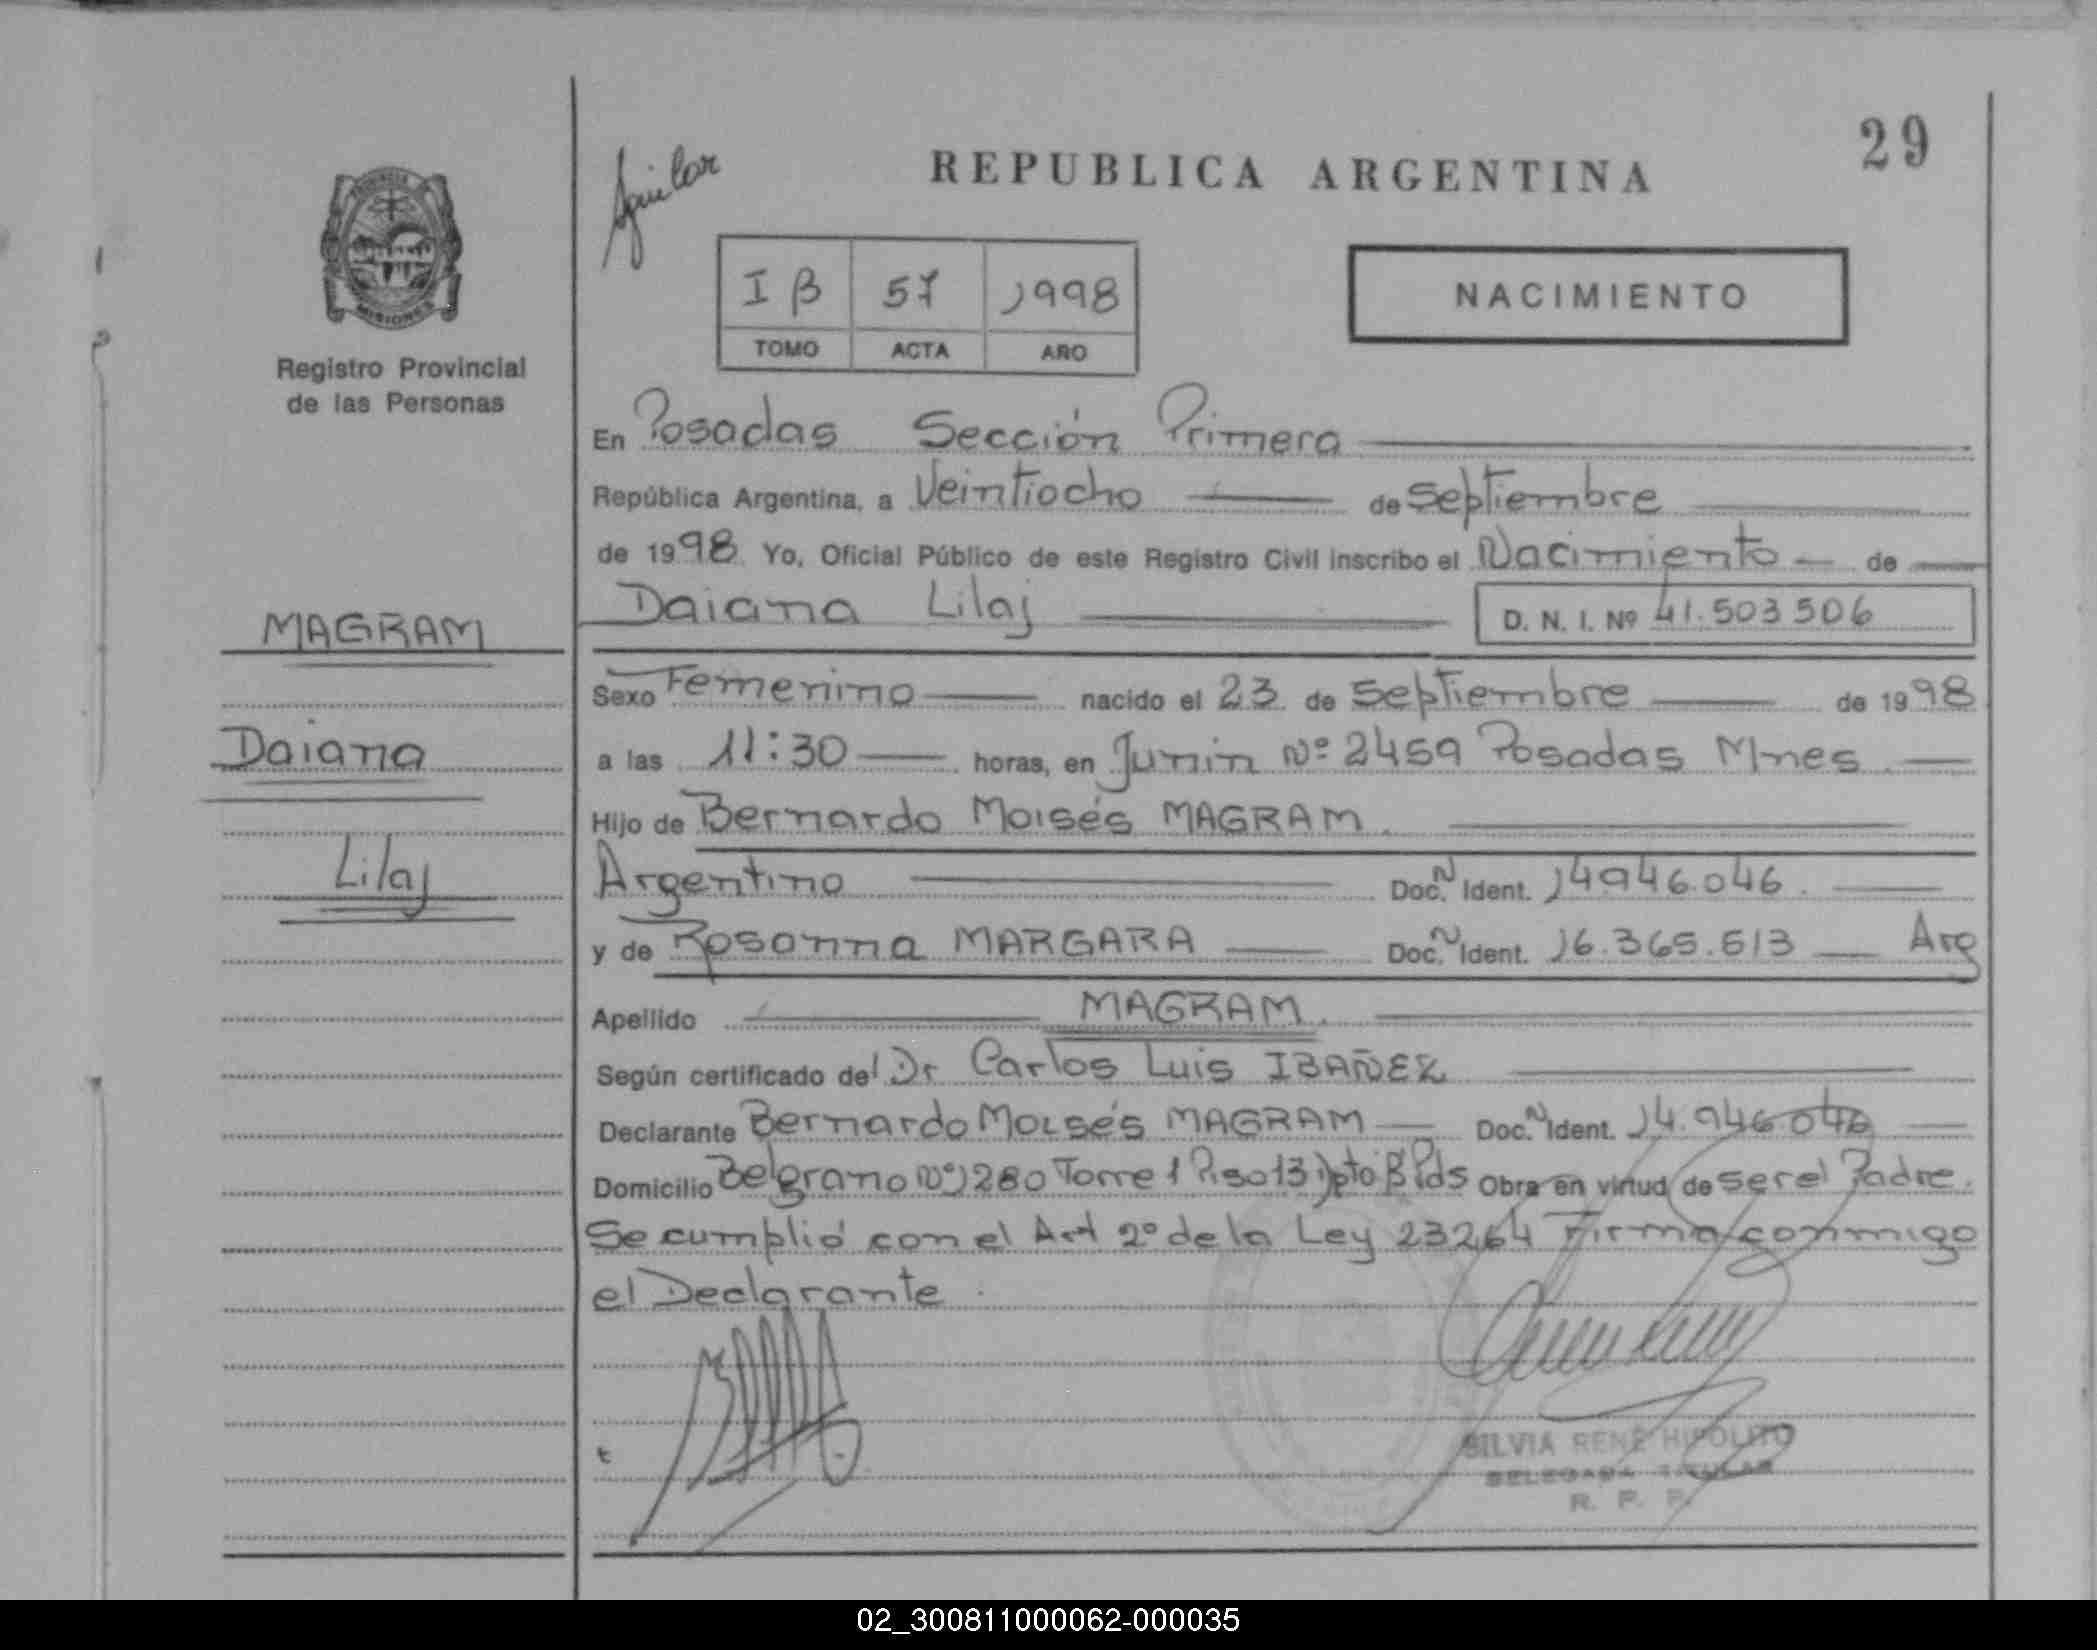 29
Aguilar
REPUBLICA ARGENTINA
PROVINCIA DE
MISIONES
Registro Provincial
de las Personas
I B 57 1998
TOMO ACTA AÑO
NACIMIENTO
En Posadas Sección Primera
República Argentina, a Veintiocho de Septiembre
de 1998 Yo, Oficial Público de este Registro Civil inscribo el Nacimiento de
Daiana Lilaj D. N. I. Nº 41.503506
MAGRAM
Daiana
Lilaj
Sexo Femenino nacido el 23 de Septiembre de 1998
a las 11:30 horas, en Junin Nº 2459 Posadas Mnes
Hijo de Bernardo Moisés MAGRAM.
Argentino Doc. N Ident. 14946.046.
y de Rosanna MARGARA Doc. N Ident. 16.365.513 Arg
Apellido MAGRAM.
Según certificado del Dr Carlos Luis IBAÑEZ
Declarante Bernardo Moisés MAGRAM Doc. N Ident. 14.946.046
Domicilio Belgrano Nº 1280 Torre 1 Piso 13 Dpto B Pds Obra en virtud de ser el Padre.
Se cumplió con el Art 2º de la Ley 23264 Firma conmigo
el Declarante.
SILVIA RENE HIPOLITO
DELEGADA TITULAR
R. P. P.
02_300811000062-000035